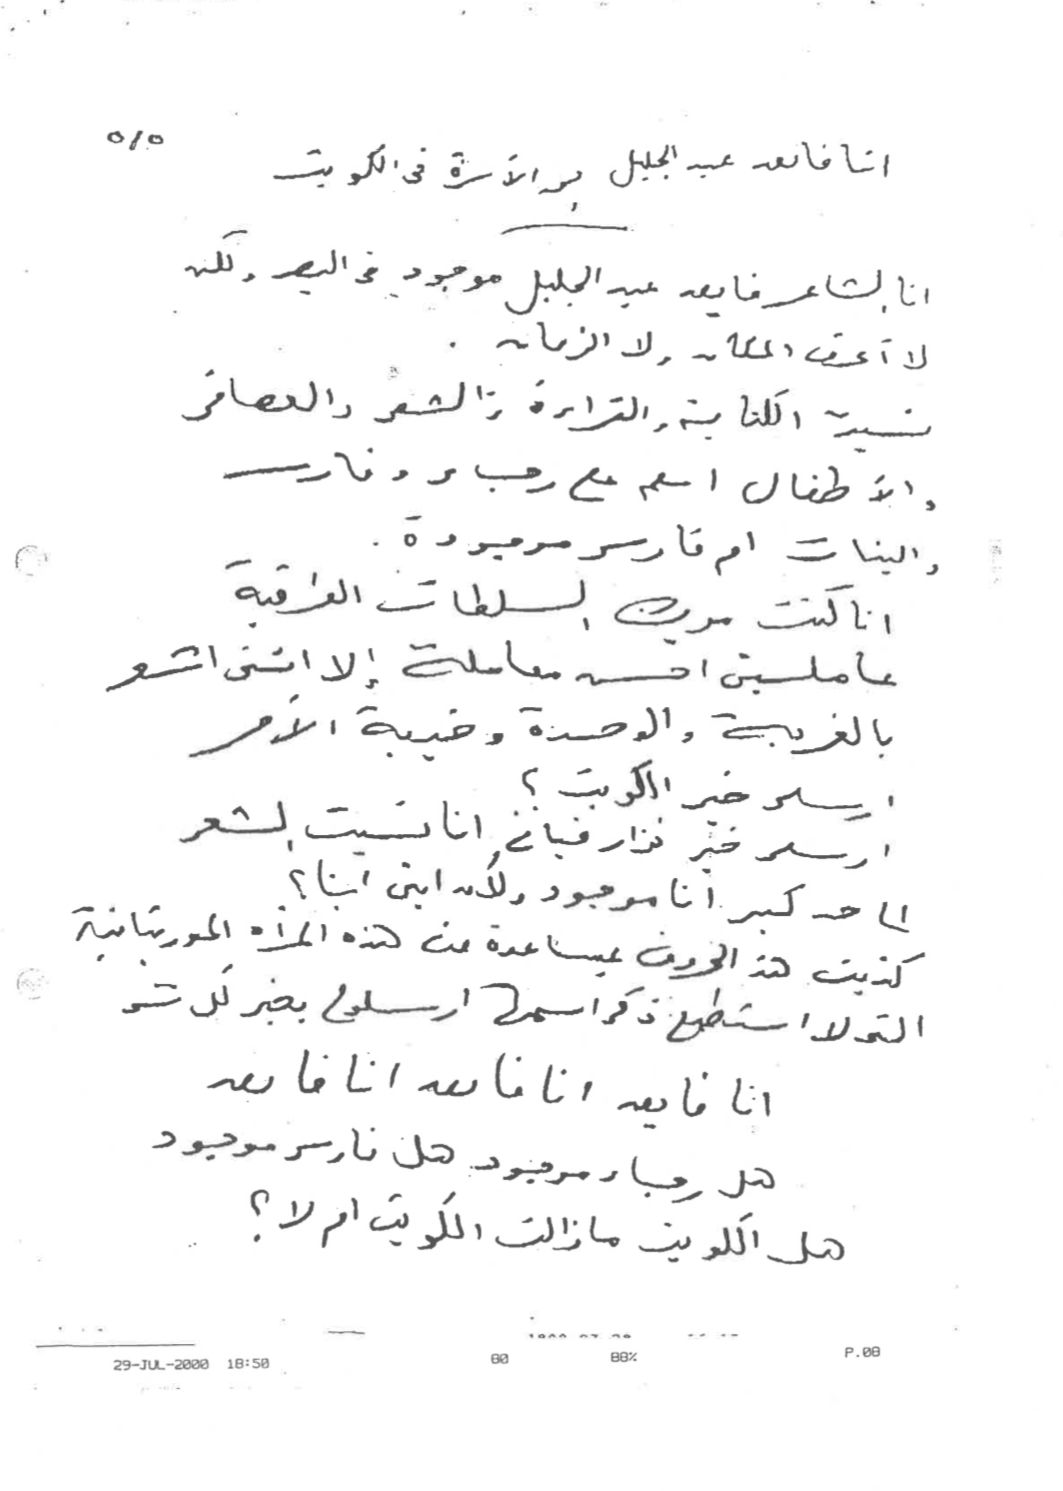 ٥/٥
انا فايعه عبد الجليل من الأسرة في الكويت
انا الشاعر فايعه عبد الجليل موجود في البصر ولكنه
لا أعرف المكان ولا الزمان .
نسيت الكتابة والقراءة والشعر والعصافر
والأطفال اسلم على رجاء و فارس
والبنات ام فارس موجودة .
انا كنت مريض السلطات العراقية
عاملتني احسن معاملة إلا انني اشعر
بالغربة والوحدة وخيبة الأمر
ارسلو خبر الكويت ؟
ارسلو خبر نزار قباني انا نسيت الشعر
الى حد كبير أنا موجود ولكن اين أنا؟
كتبت هذ الحروف بمساعدة من هذه المرأه الموريتانية
التى لا استطيع ذكر اسمها ارسلولي بخبر كل شي
انا فايعه انا فايعه انا فايعه
هل رجاء موجود هل فارس موجود
هل الكويت مازالت الكويت ام لا ؟
29-JUL-2000 18:50 80 88% P.08